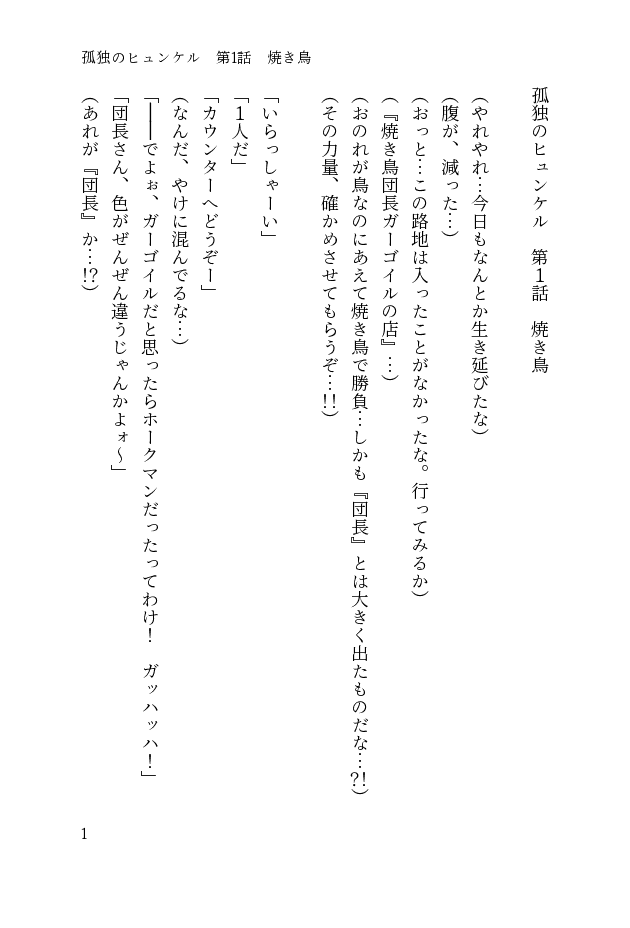 孤独のヒュンケル　第1話　焼き鳥
孤独のヒュンケル　第１話　焼き鳥
(やれやれ…今日もなんとか生き延びたな)
(腹が、減った…)
(おっと…この路地は入ったことがなかったな。行ってみるか)
(『焼き鳥団長ガーゴイルの店』…)
(おのれが鳥なのにあえて焼き鳥で勝負…しかも『団長』とは大きく出たものだな…?!)
(その力量、確かめさせてもらうぞ…!!)
「いらっしゃーい」
「１人だ」
「カウンターへどうぞー」
(なんだ、やけに混んでるな…)
「━━でよぉ、ガーゴイルだと思ったらホークマンだったってわけ！　ガッハッハ！」
「団長さん、色がぜんぜん違うじゃんかよォ～」
(あれが『団長』か…!?)
1